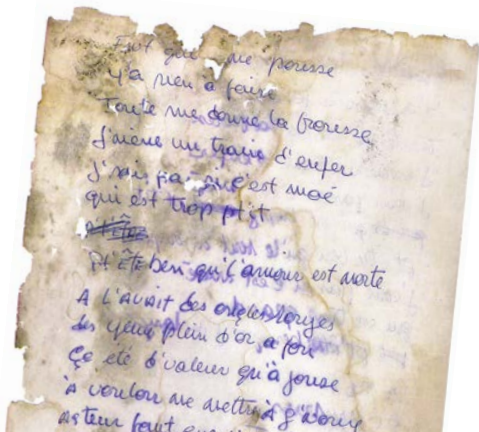 Faut que me pousse
Y'a rien à faire
Toute me donne la frousse
J'mène un train d'enfer
J'sais pas si c'est moé
qui est trop ptit
Pt'Ête ben qu'l'amour est morte
A l'avait des ongles rouges
des yeux plein d'or a fou
Ça été d'valeur qu'à jouse
à vouloir me mettre à g'noux
faut que